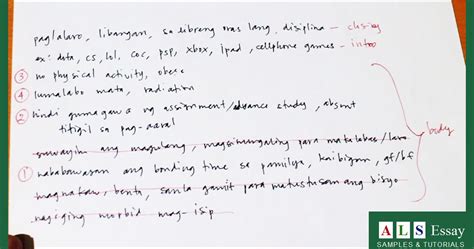 paglalaro, libangan, sa libreng oras lang, disiplina - closing
ex: dota, cs, lol, coc, psp, xbox, ipad, cellphone games - intro
③ no physical activity, obese
④ lumalabo mata, radiation
② hindi gumagawa ng assignment/advance study, absent
titigil sa pag-aaral
suwayin ang magulang, magsinungaling para makalabas/laro
① nababawasan ang bonding time sa pamilya, kaibigan, gf/bf
magnakaw, benta, sanla gamit para matustusan ang bisyo
nagiging morbid mag-isip
body
ALS Essay
SAMPLES & TUTORIALS